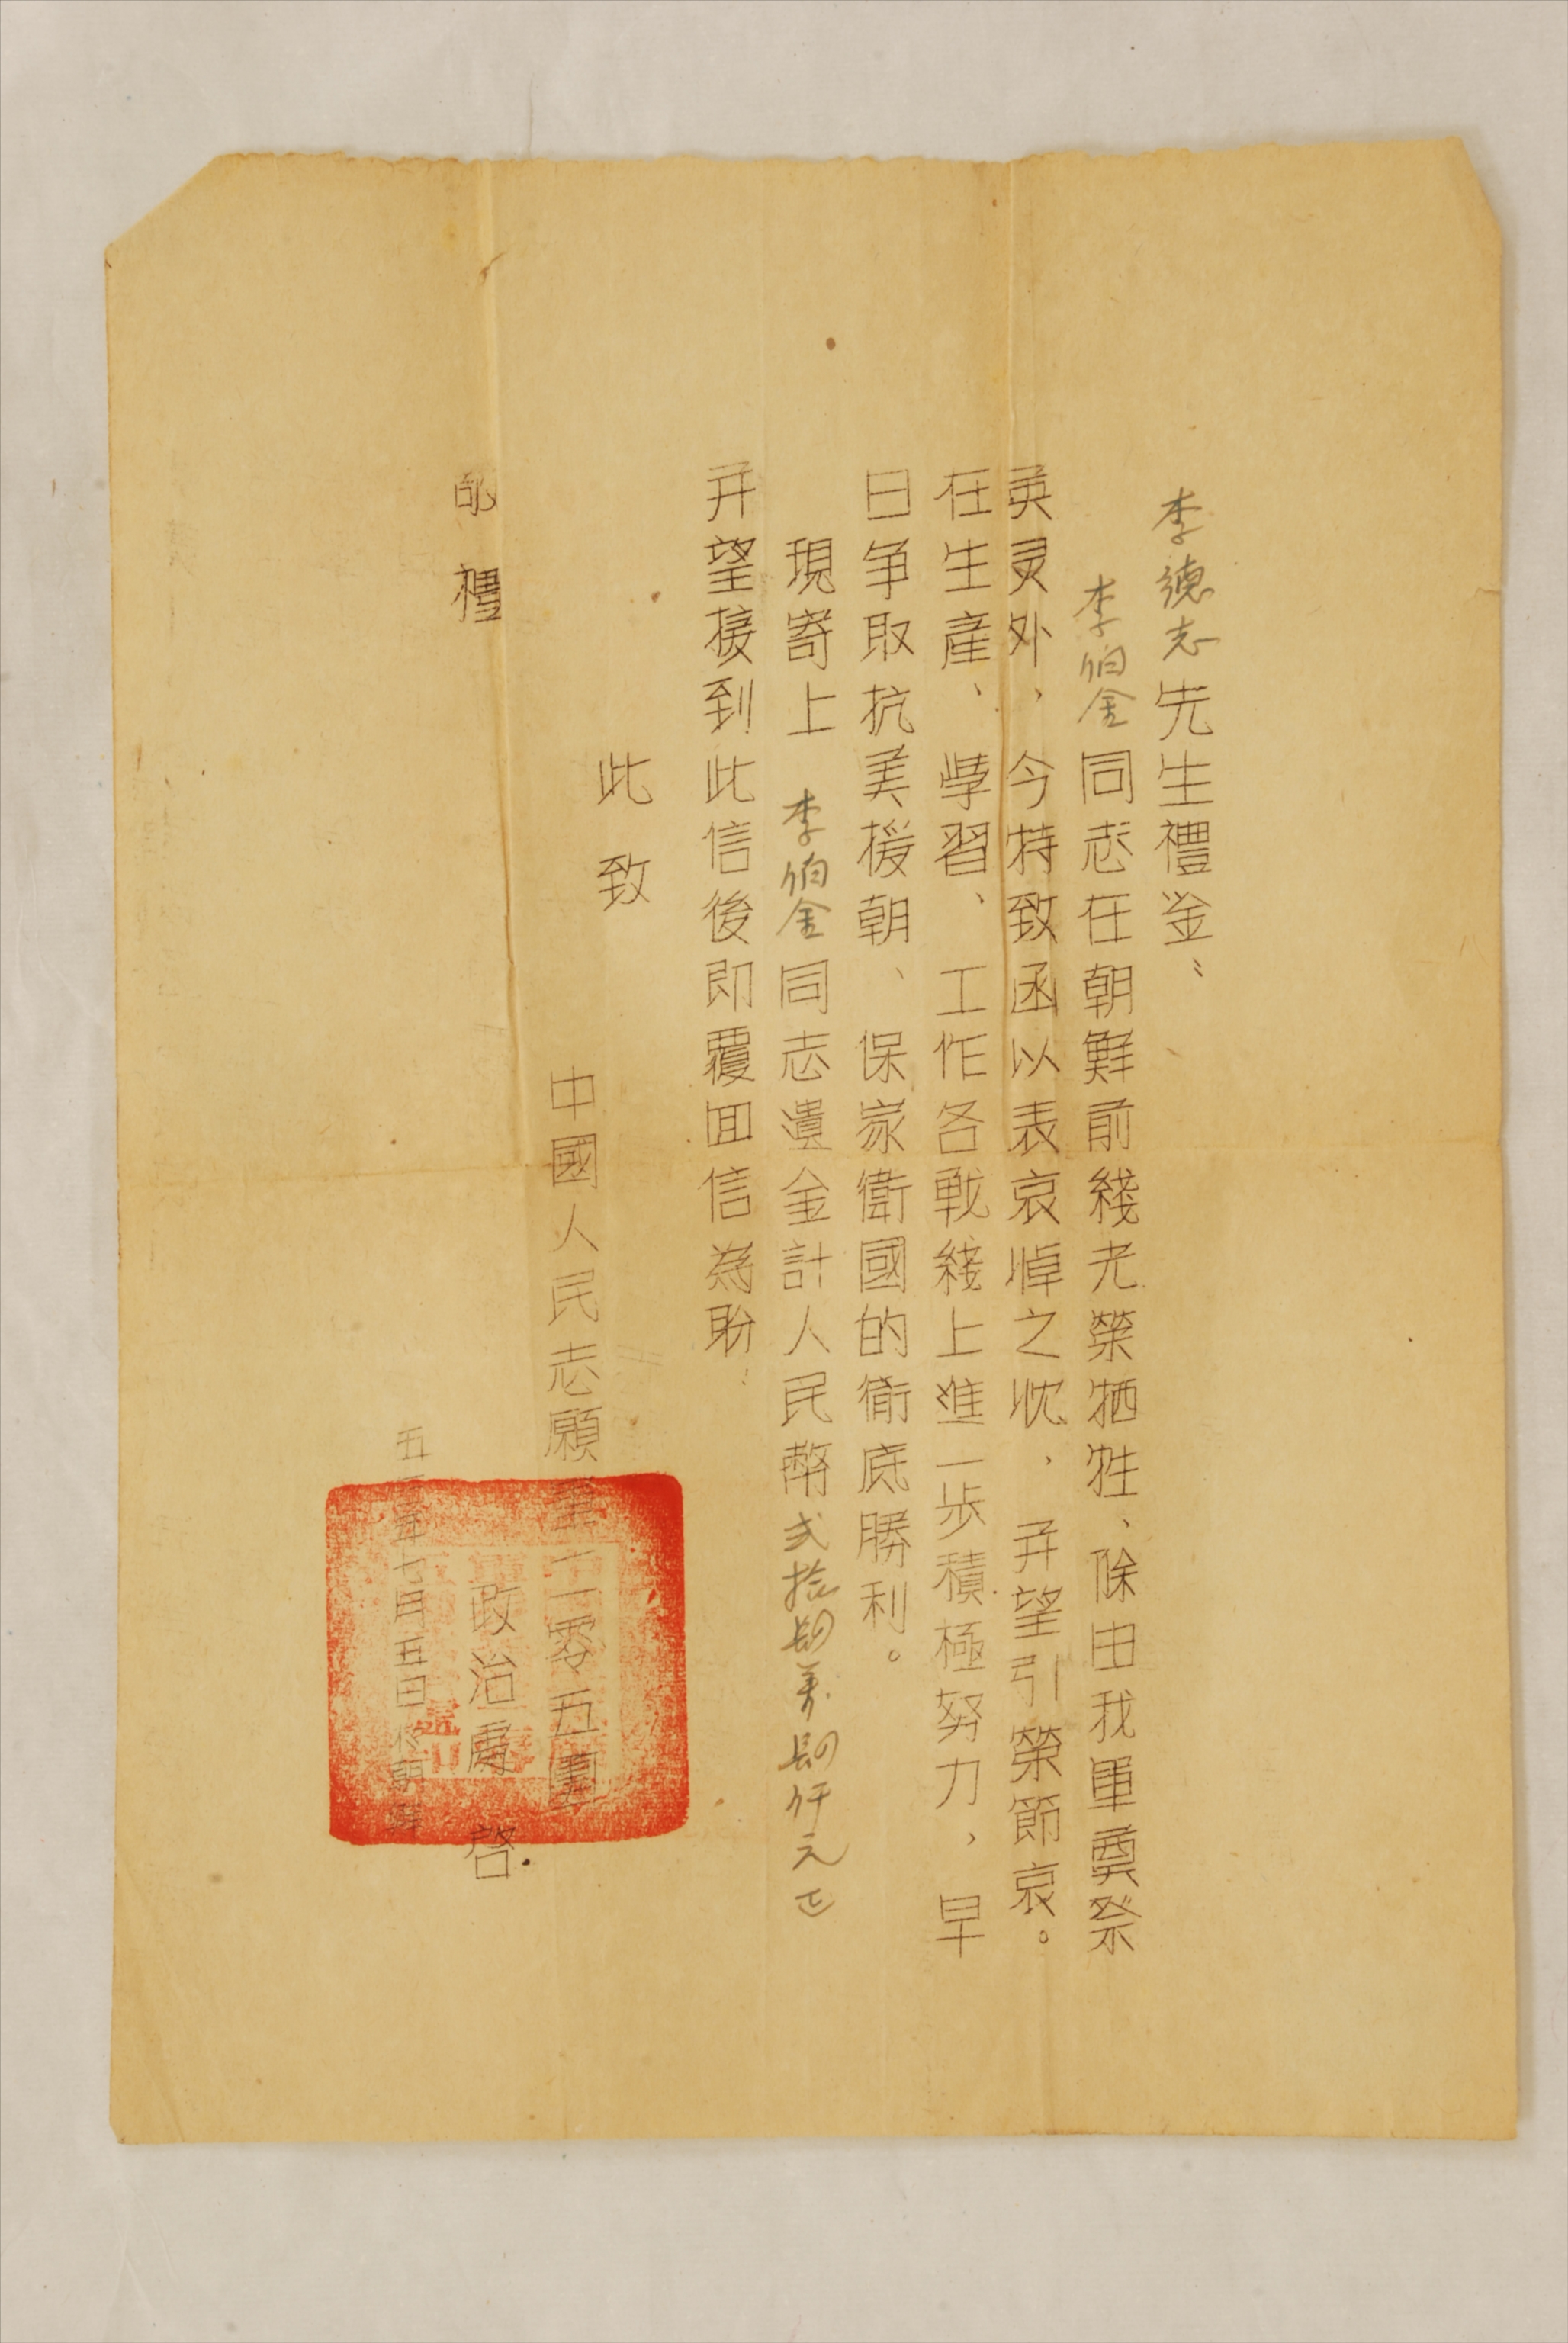 李德志先生禮鉴：
李伯金同志在朝鮮前綫光榮牺牲、除由我軍奠祭
英灵外，今特致函以表哀悼之忱，并望引榮節哀。
在生産、學習、工作各戰綫上進一步積極努力，早
日争取抗美援朝、保家衛國的徹底勝利。
現寄上李伯金同志遺金計人民幣弍拾 萬 仟元正
并望接到此信後即覆回信為盼：
此致
敬禮
中國人民志願軍一一零五團
政治處 啓
五 年七月五日於朝鮮